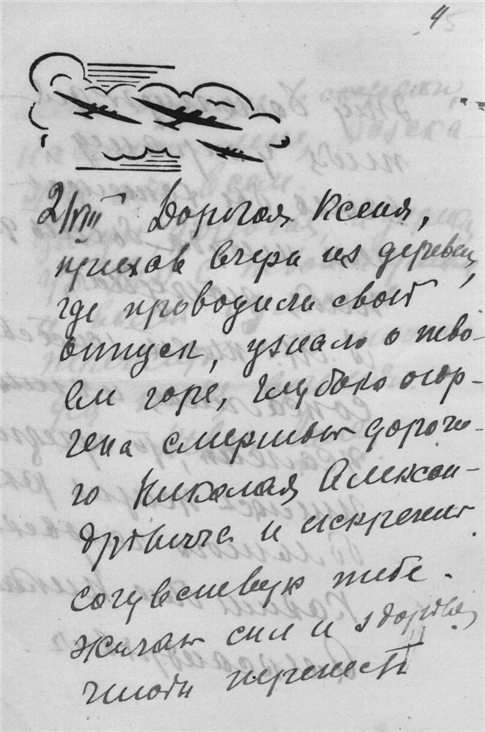 45
2/VIII Дорогая Ксеня,
приехав вчера из деревни,
где проводила свой
отпуск, узнала о тво-
ем горе, глубоко огор-
чена смертью дорого-
го Николая Алексан-
дровича и искренне
сочувствую тебе.
Желаю сил и здоровья,
чтобы перенести